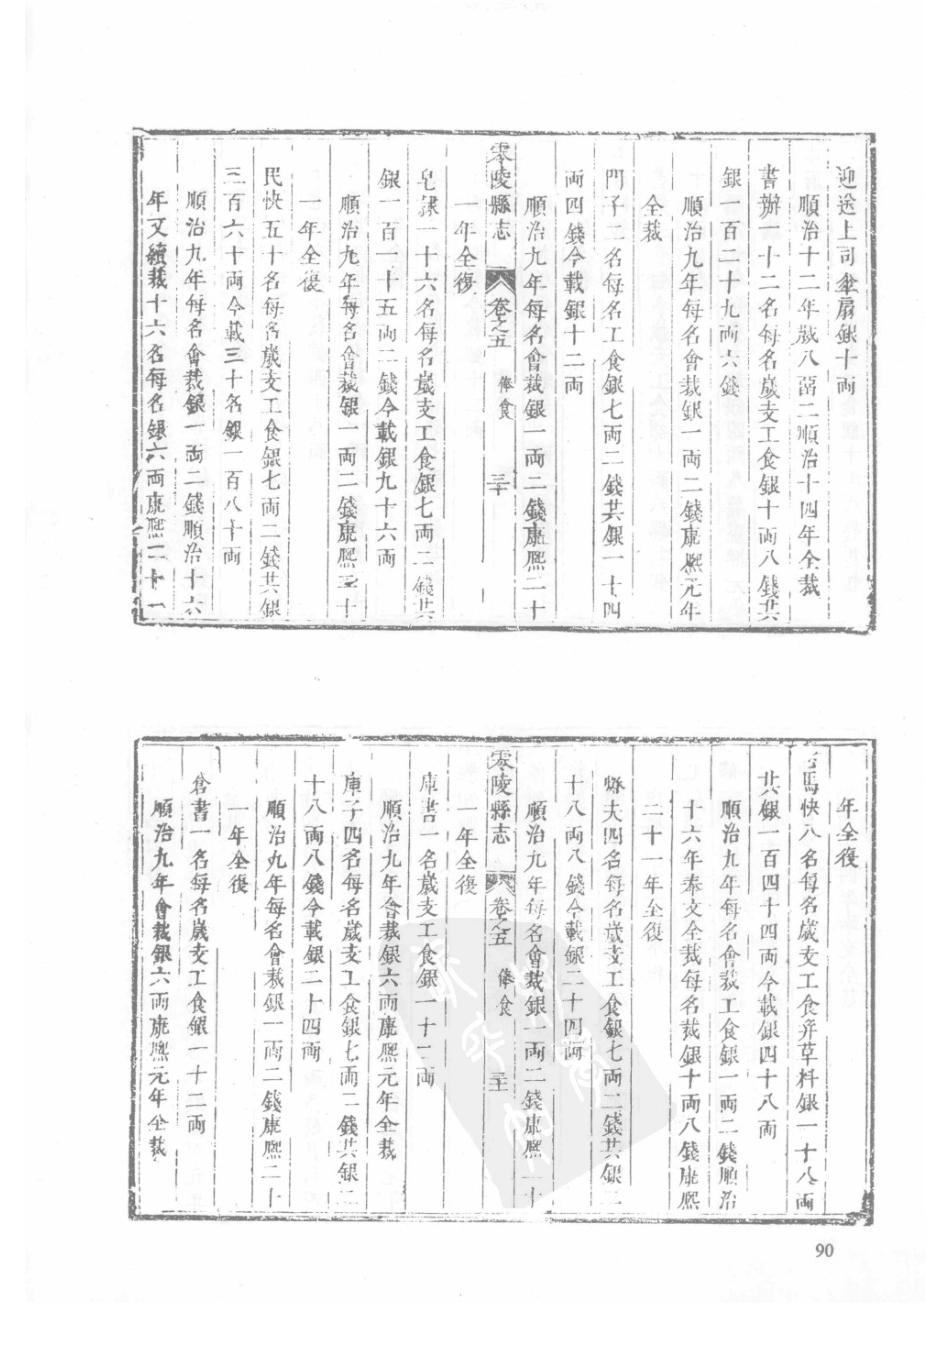 迎送上司傘扇銀十両
順治十二年裁八両二順治十四年全裁
書辦一十二名每名歲支工食銀十両八錢共
銀一百二十九両六錢
順治九年每名會裁銀一両二錢康熙元年
全裁
門子二名每名工食銀七両二錢共銀一十四
両四錢今載銀十二両
順治九年每名會裁銀一両二錢康熙二十
零陵縣志 卷之五 俸食 三十
一年全復
皂隸一十六名每名歲支工食銀七両二錢共
銀一百一十五両二錢今載銀九十六両
順治九年每名會裁銀一両二錢康熙二十
一年全復
民快五十名每名歲支工食銀七両二錢共銀
三百六十両今載三十名銀一百八十両
順治九年每名會裁銀一両二錢順治十六
年又續裁十六名每名銀六両康熙二十一
年全復
馬快八名每名歲支工食并草料銀一十八両
共銀一百四十四両今載銀四十八両
順治九年每名會裁工食銀一両二錢順治
十六年奉文全裁每名裁銀十両八錢康熙
二十一年全復
夫四名每名歲支工食銀七両二錢共銀二
十八両八錢今載銀二十四両
順治九年每名會裁銀一両二錢康熙二十
零陵縣志 卷之五 俸食 三十一
一年全復
庫書一名歲支工食銀一十二両
順治九年會裁銀六両康熙元年全裁
庫子四名每名歲支工食銀七両二錢共銀二
十八両八錢今載銀二十四両
順治九年每名會裁銀一両二錢康熙二十
一年全復
倉書一名每名歲支工食銀一十二両
順治九年會裁銀六両康熙元年全裁
90